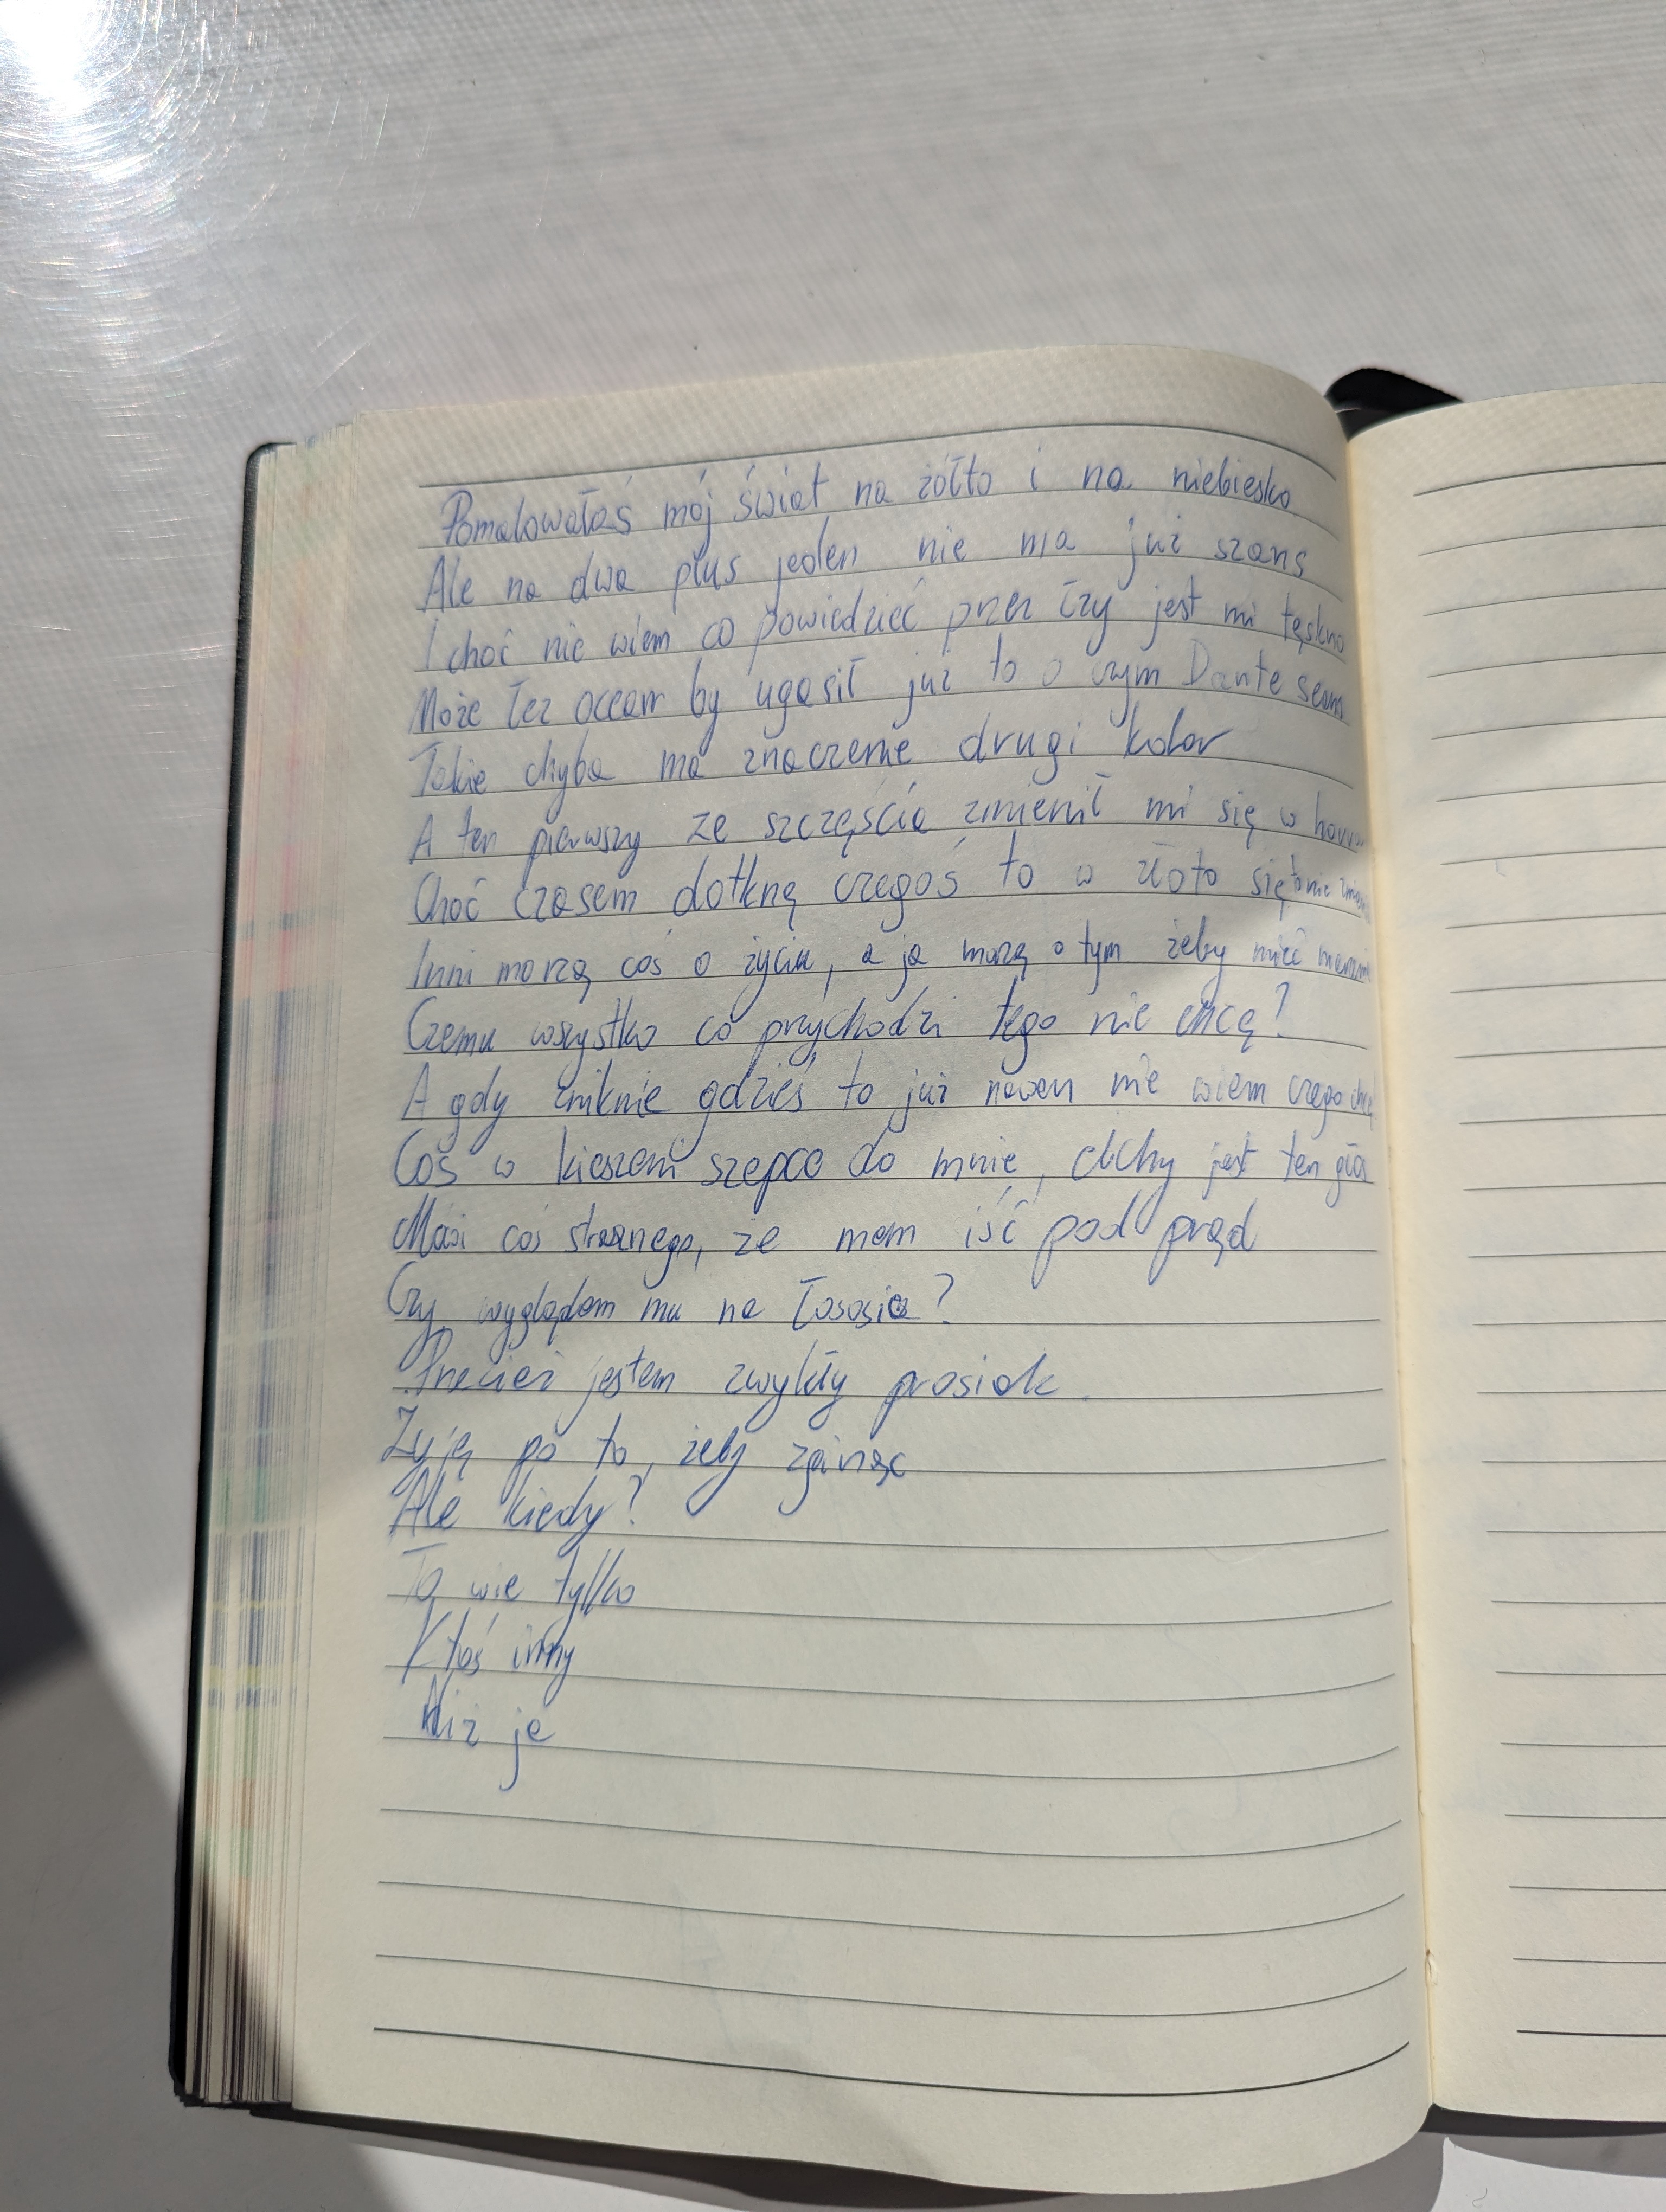 Pomalowałaś mój świat na żółto i na niebiesko
Ale na dwa plus jeden nie ma już szans
I choć nie wiem co powiedzieć przez łzy jest mi tęskno
Może łez ocean by ugasił już to o czym Dante
Takie chyba ma znaczenie drugi kolor
A ten pierwszy ze szczęścia zmienił mi się w horror
Choć czasem dotknę czegoś to w złoto się to nie
Inni marzą coś o życiu, a ja marzę o tym żeby mieć
Czemu wszystko co przychodzi tego nie chcę?
A gdy zniknie gdzieś to już nawet nie wiem czego chcę
Coś w kieszeni szepce do mnie, cichy jest ten głos
Mówi coś strasznego, że mam iść pod prąd
Czy wyglądam mu na łososia?
Przecież jestem zwykły prosiak.
Żyję po to, żeby zginąć
Ale kiedy?
To wie tylko
Ktoś inny
Niż ja